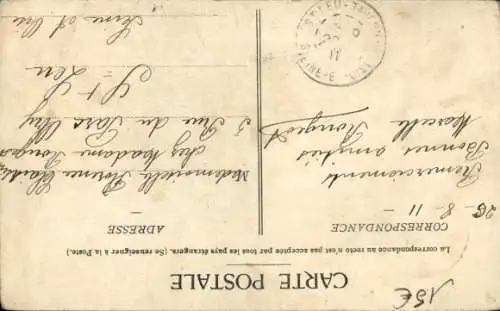 CARTE POSTALE
La correspondance au recto n'est pas acceptée par tous les pays étrangers. (Se renseigner à la Poste.)
CORRESPONDANCE
26 - 8 - 11 -
Remerciements
Bonnes amitiés
Marcelle
ADRESSE
Mademoiselle
chez Madame
3 Rue du
St Leu
Seine et Oise
ST LEU-TAVERNY
SEINE-ET-OISE
15€